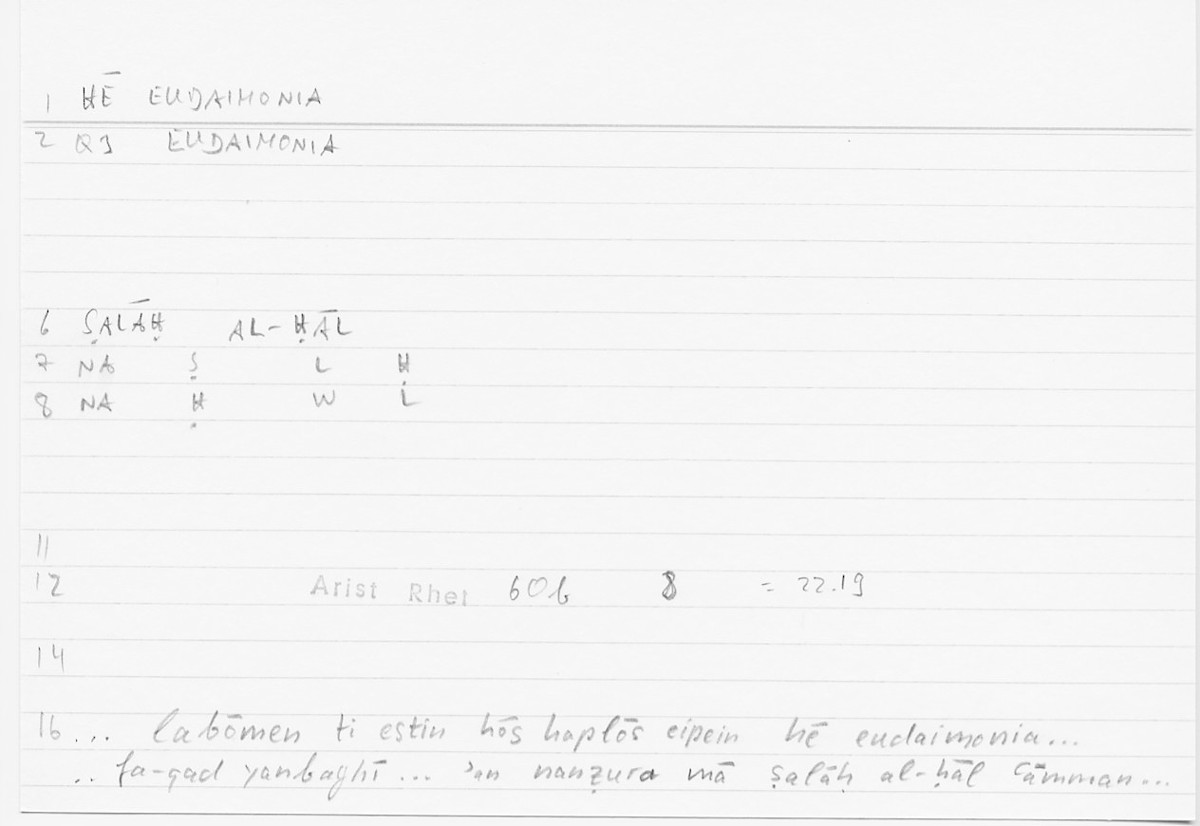 1 HĒ EUDAIMONIA
2 QJ EUDAIMONIA
6 ṢALĀḤ AL-ḤĀL
7 NA Ṣ L Ḥ
8 NA Ḥ W L
11
12 Arist Rhet 60b 8 = 22.19
14
16 ... labōmen ti estin hōs haplōs eipein hē eudaimonia...
.. fa-qad yanbaghī ... ʾan nanẓura mā ṣalāḥ al-ḥāl ʿāmman...